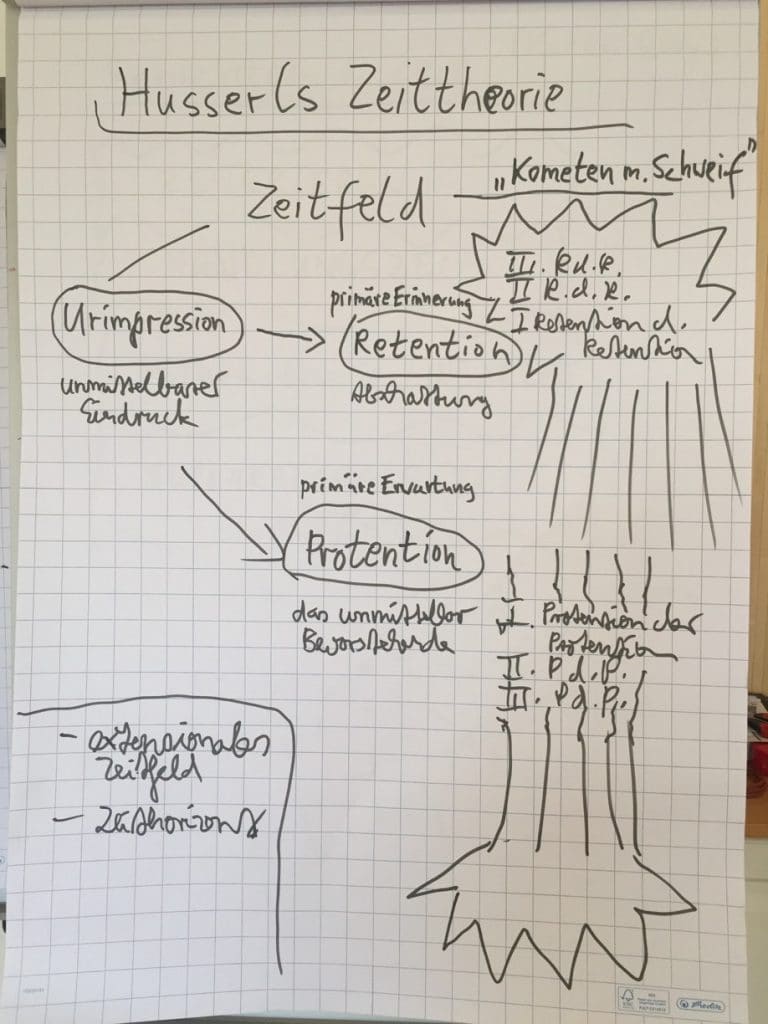 Husserls Zeittheorie
Zeitfeld — „Kometen m. Schweif"
III. R d. R.
II R. d. R.
I Retention d.
Retention
primäre Erinnerung
Urimpression
Retention
unmittelbarer
Eindruck
Abschattung
primäre Erwartung
Protention
das unmittelbar
Bevorstehende
I. Protension der
Protension
II. P. d. P.
III. P d. P.
- extensionales
Zeitfeld
- Zeithorizont